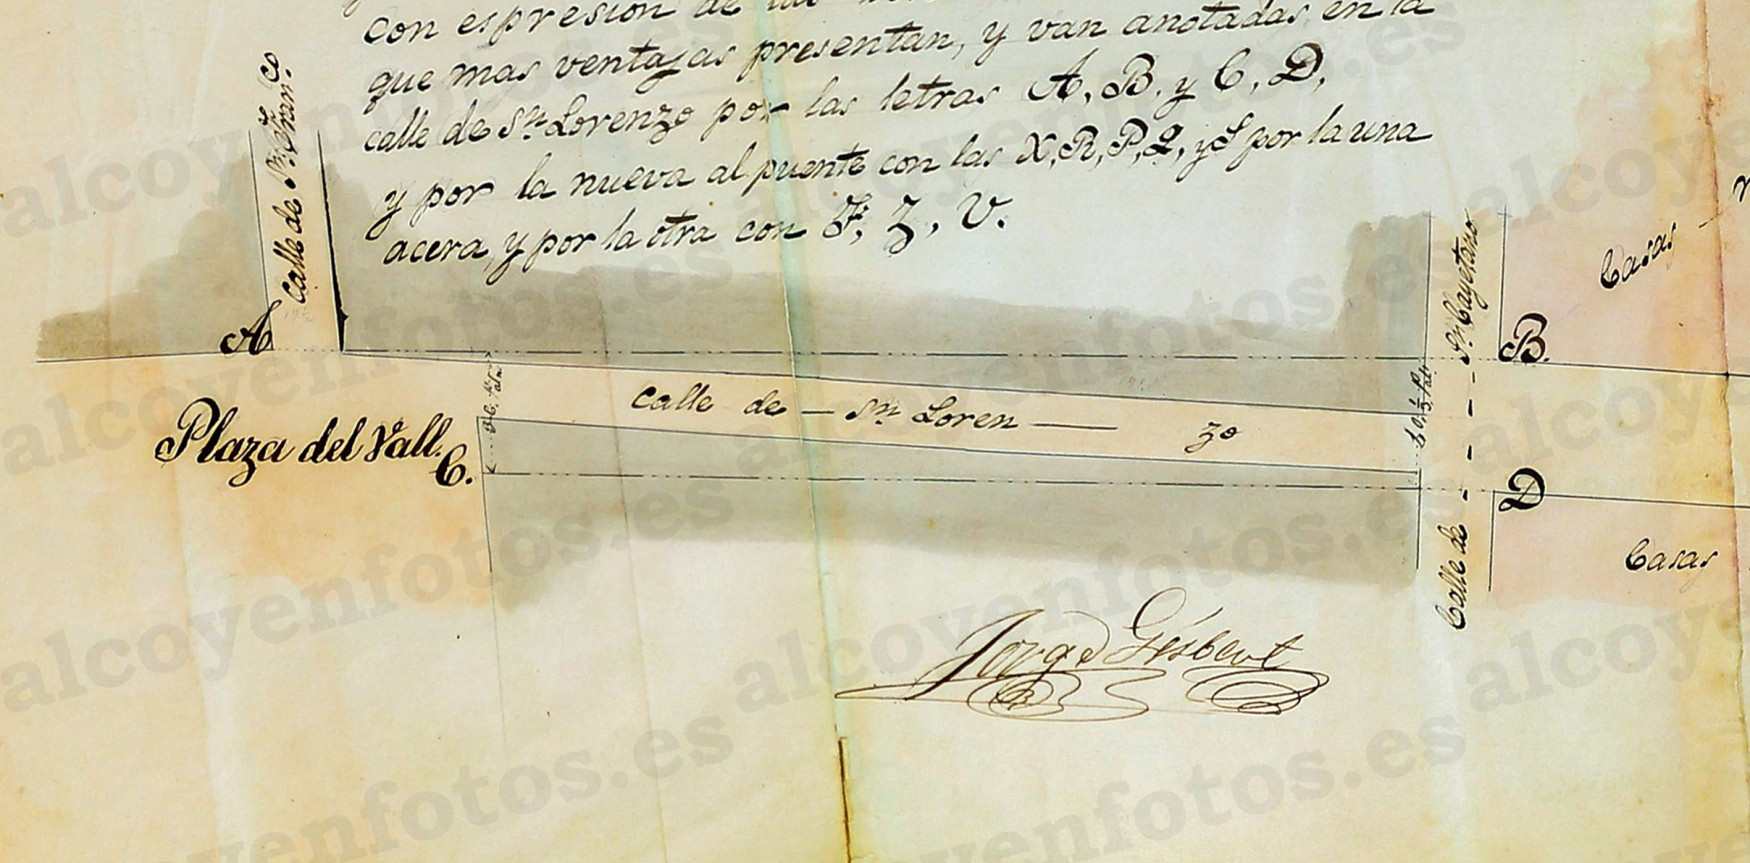 con espresion de las
que mas ventajas presentan, y van anotadas en la
calle de Sn. Lorenzo por las letras A, B. y C, D,
y por la nueva al puente con las X, R, P, Q, y S por la una
acera, y por la otra con F, Z, V.
Calle de Sn. Franco.
A
B.
Casas
Calle de Sn. Cayetano
calle de Sn. Lorenzo
Plaza del Vall.
C.
D
Casas
Jorge Gisbert
alcoyenfotos.es